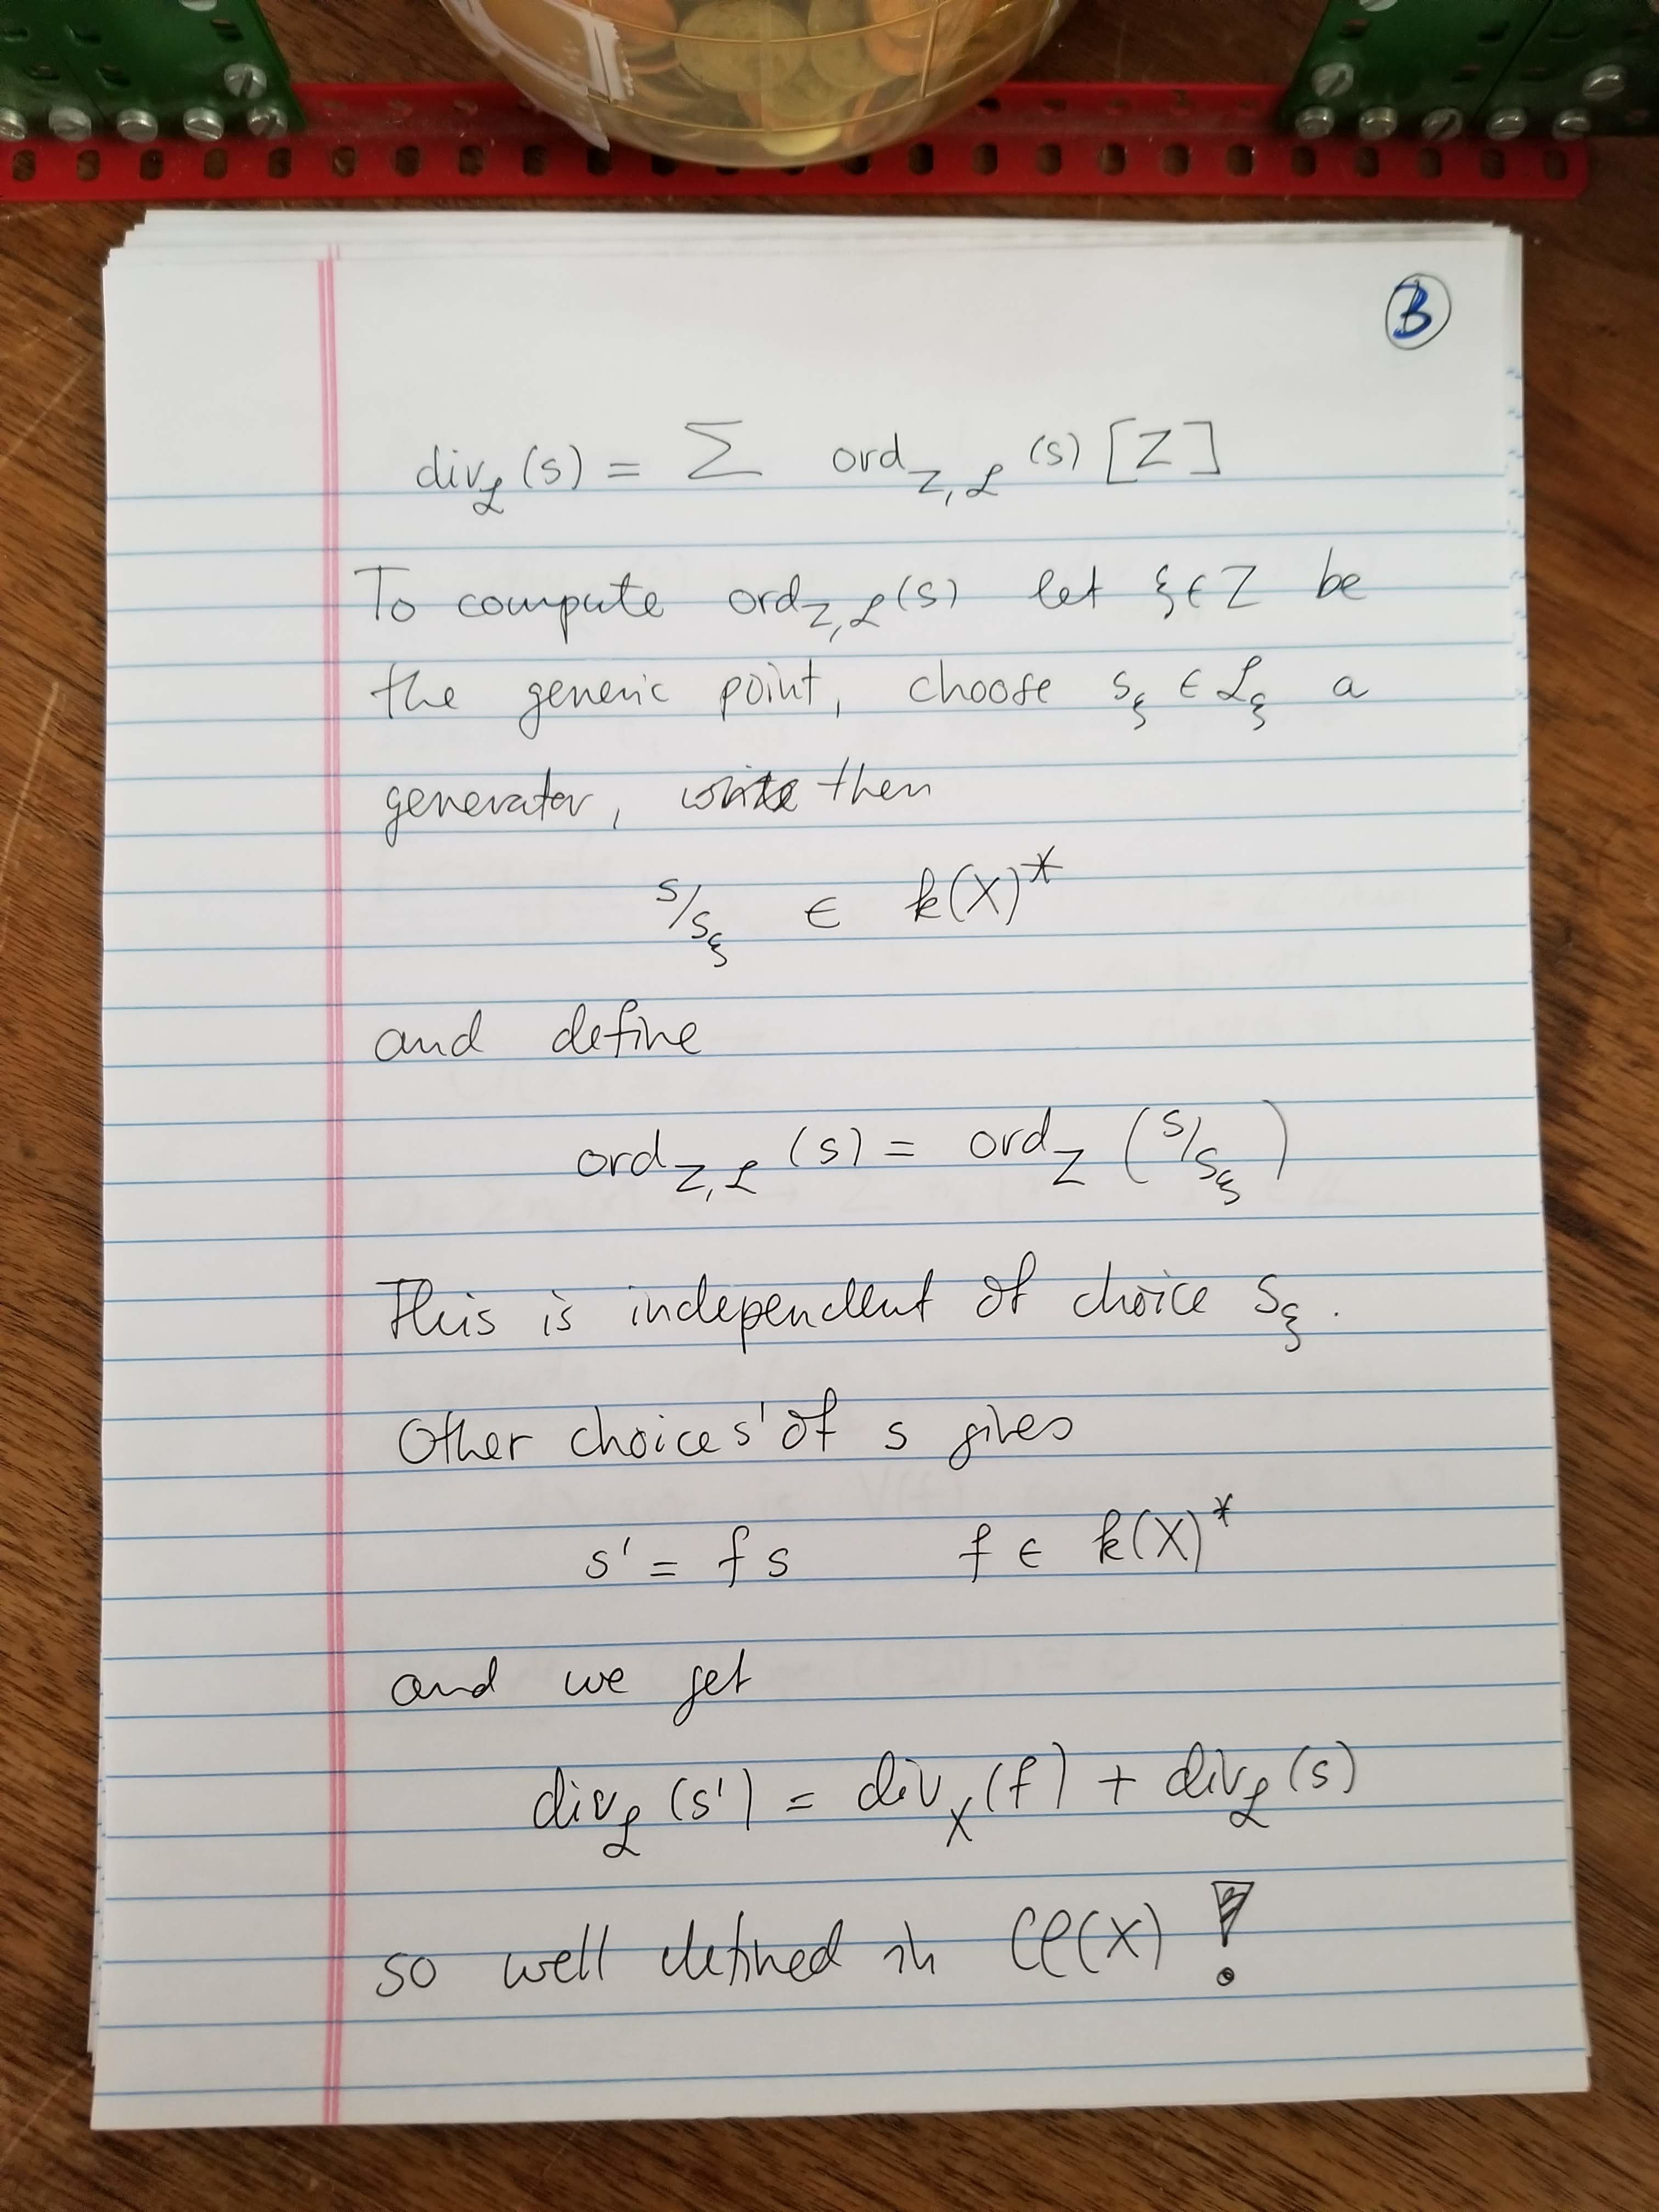 3
div_ℒ(s) = Σ ord_{Z,ℒ}(s) [Z]
To compute ord_{Z,ℒ}(s) let ξ ∈ Z be
the generic point, choose s_ξ ∈ ℒ_ξ a
generator, then
s/s_ξ ∈ k(X)^*
and define
ord_{Z,ℒ}(s) = ord_Z (s/s_ξ)
This is independent of choice s_ξ.
Other choice s' of s gives
s' = f s f ∈ k(X)^*
and we get
div_ℒ(s') = div_X(f) + div_ℒ(s)
so well defined in Cl(X) !